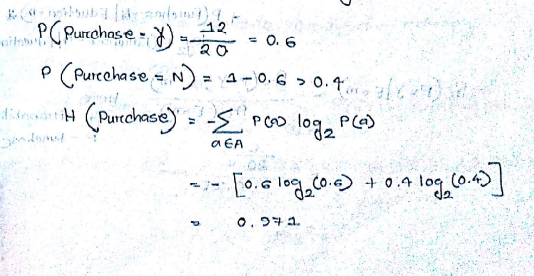 P(Purchase = Y) = 12/20 = 0.6
P (Purchase = N) = 1 - 0.6 > 0.4
H (Purchase) = -Σ_{a∈A} P(a) log₂ P(a)
= - [0.6 log₂(0.6) + 0.4 log₂(0.4)]
= 0.971